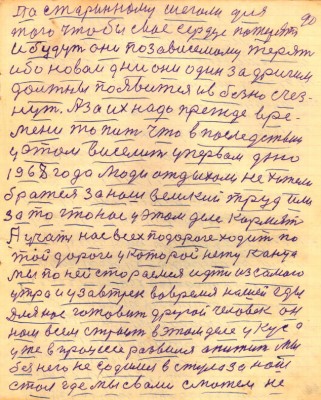 По старинному шагали для 90
того чтоби свое сердце потерят
и будут они позависемому терят
ибо новои дни они один за другим
должны появится и безно счез-
нут. А за их надо прежде вре-
мени топит что в последствии
у этом висемит упервам дню
1968 года люди отдихали не хотели
братся за наш великий труд или
за то что нас у этом деле кормят
А учат нас всех по дороге ходит по
той дороги у которой нету конца
мы по ней стараемся идти из самого
утра и у завтрек вовремя нашей еды
для нас готовит другой человек он
нам всем строит в этом деле укус
уже в процессе развился апитит мы
без него не садимся в стула за наш
стол где мы с вами сможем не